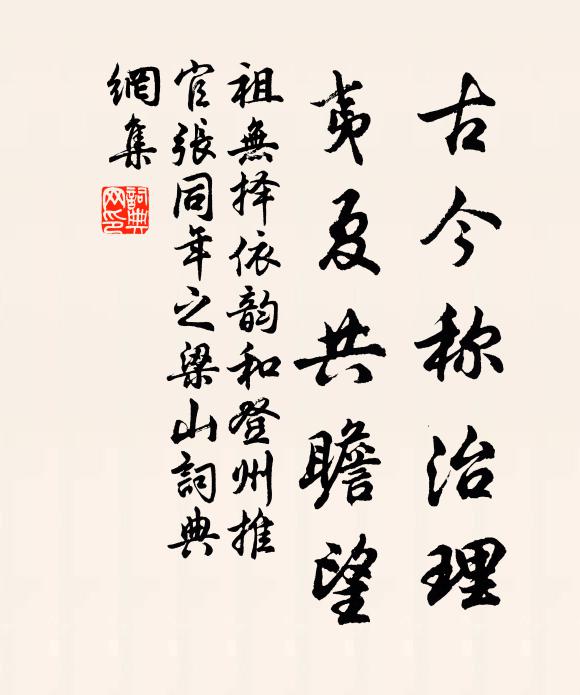 古今称治理
夷夏共瞻望
祖無择依韵和登州推
官張同年之梁山詞典
網集
詞典网印